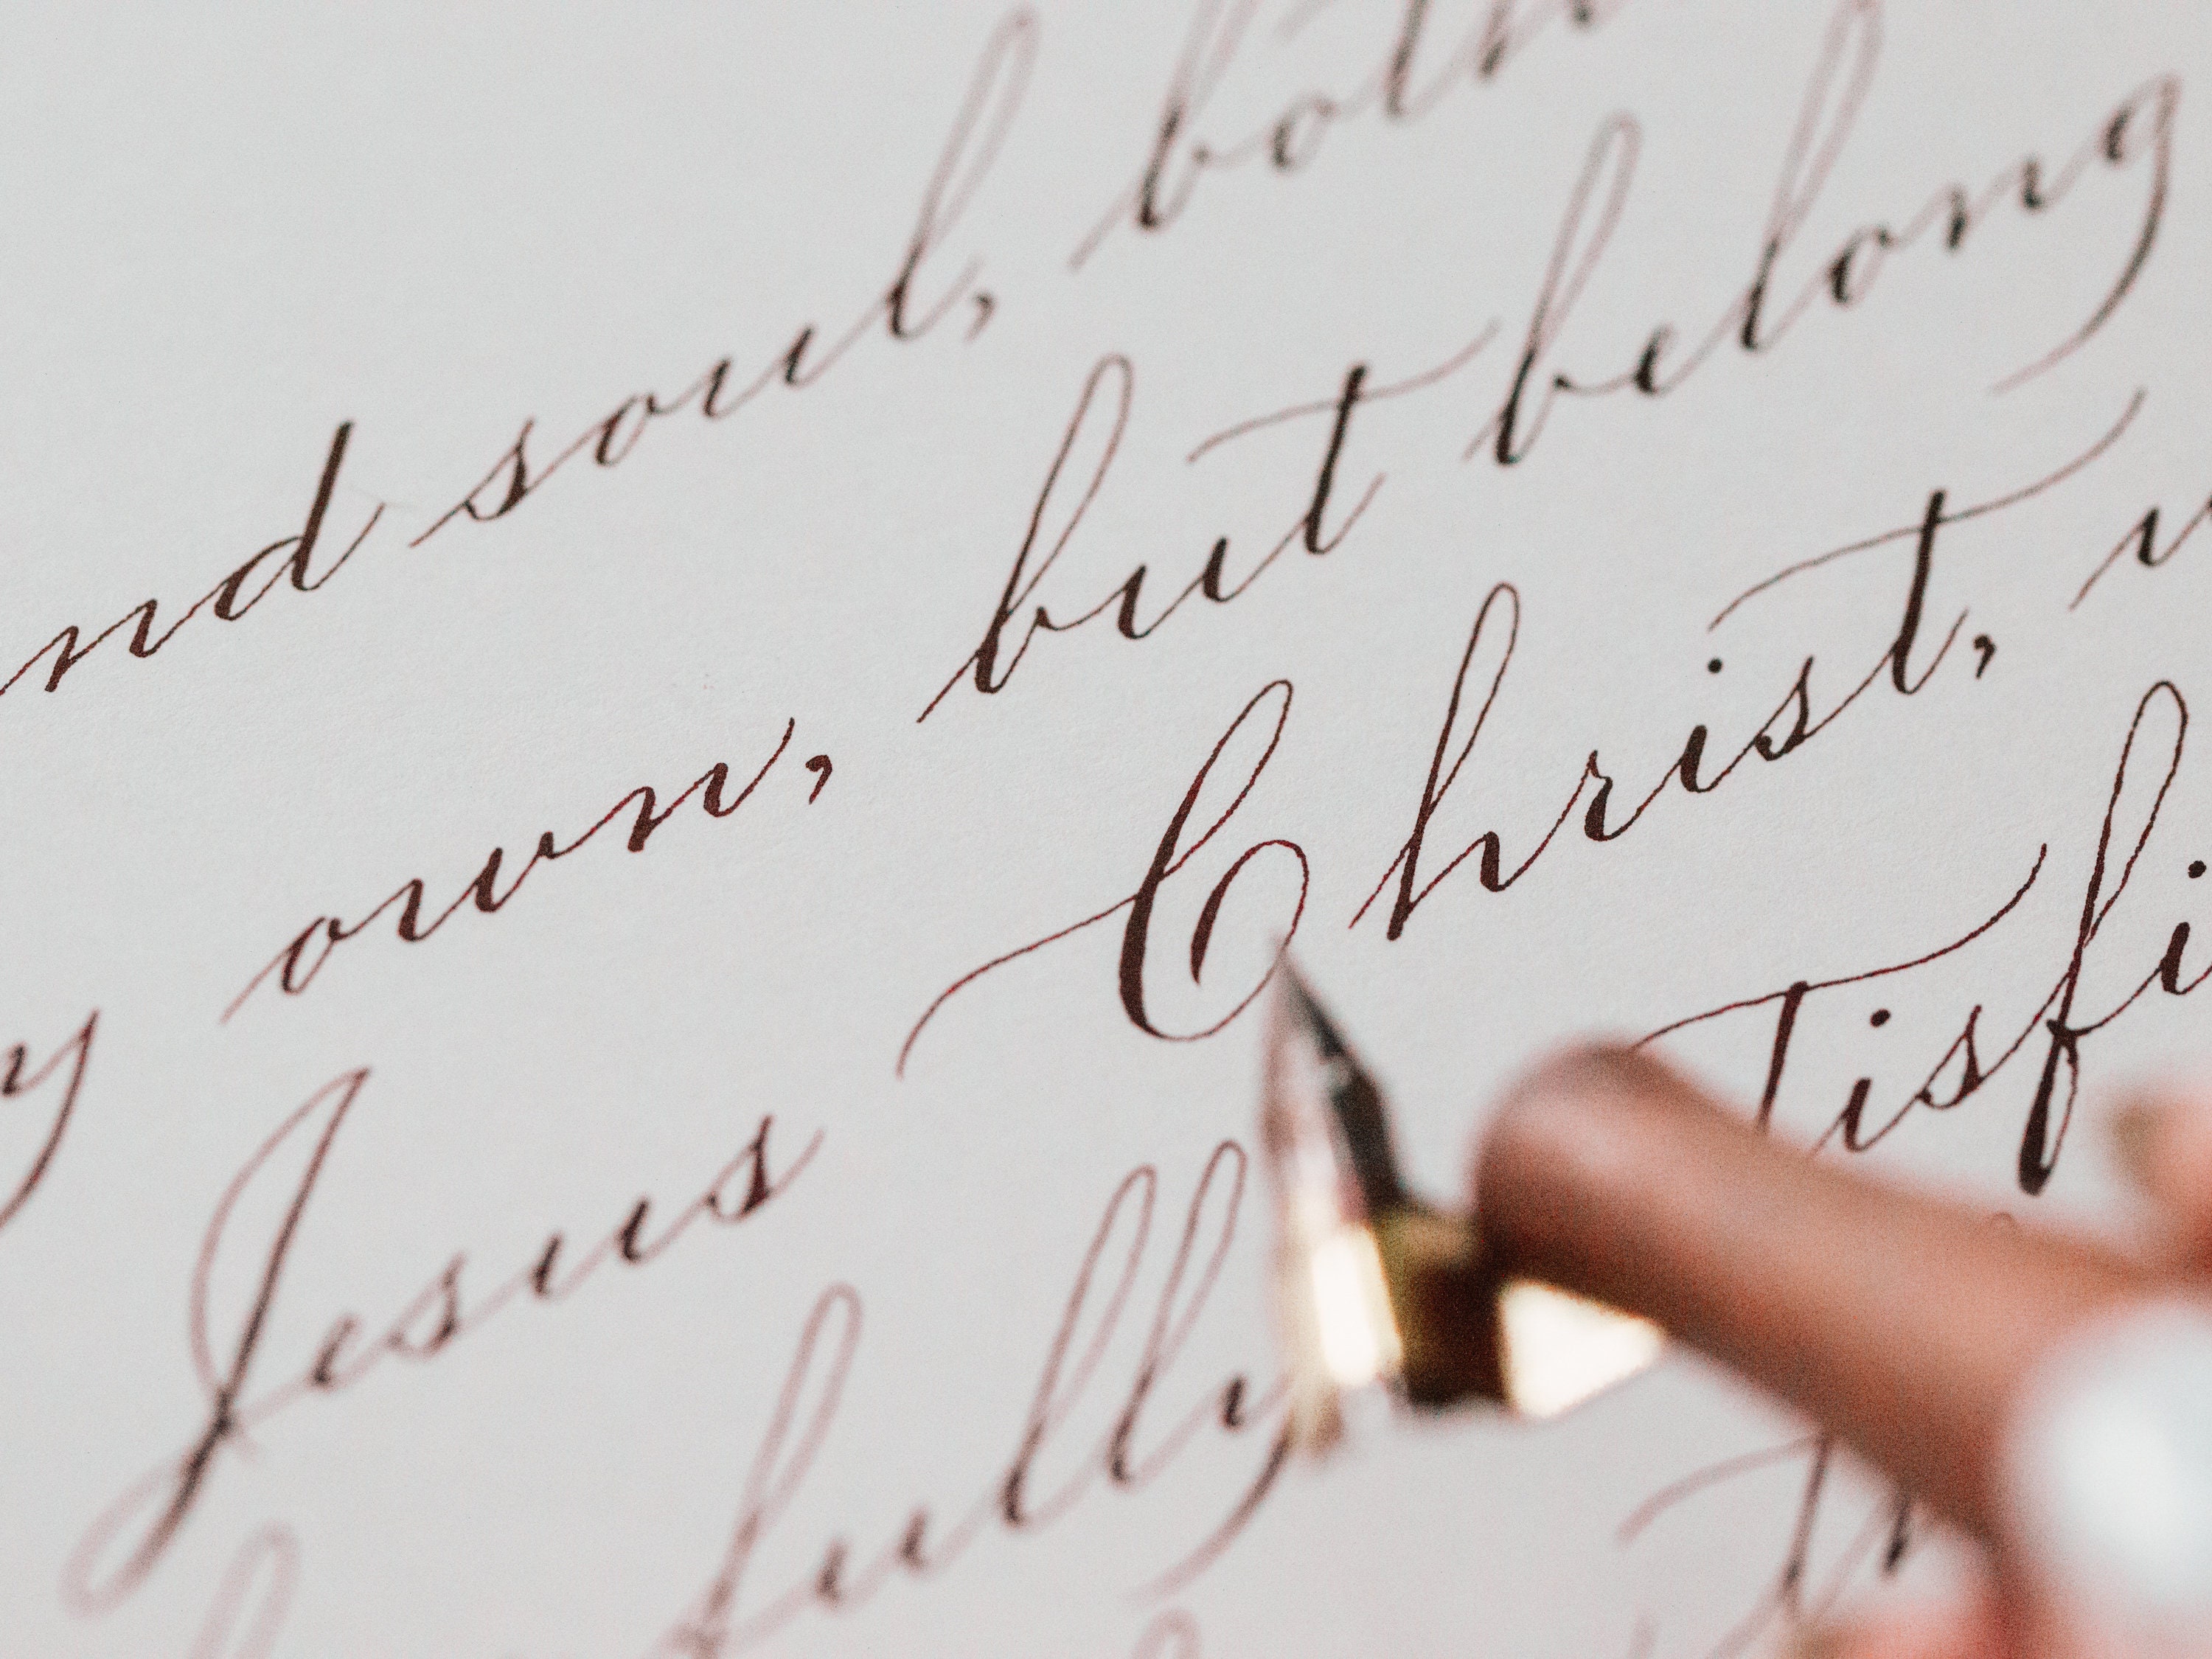 nd soul, both
y own, but belong
Jesus Christ,
fully tisfi